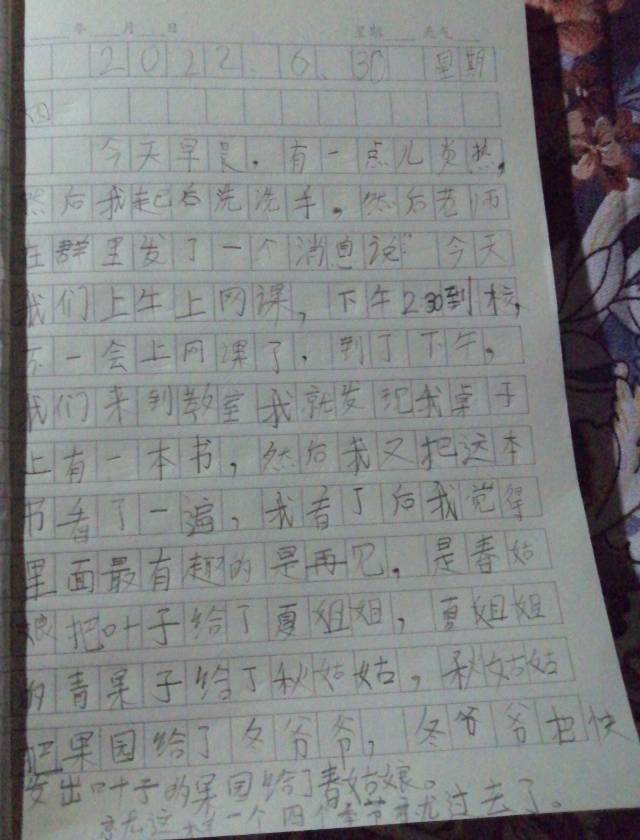 年 月 日 星期 天气
2022.6.30 星期
四
今天早晨。有一点儿发热,
然后我起后洗洗手。然后范师
在群里发了一个消息说“今天
我们上午上网课,下午2:30到校,
不一会上网课了,到了下午,
我们来到教室我就发现我桌子
上有一本书,然后我又把这本
书看了一遍,我看了后我觉得
里面最有趣的是再见,是春姑
娘把叶子给了夏姐姐,夏姐姐
的青果子给了秋姑姑,秋姑姑
把果园给了冬爷爷,冬爷爷把快
发出叶子的果园给了春姑娘。
就这样一个四个季节就过去了。